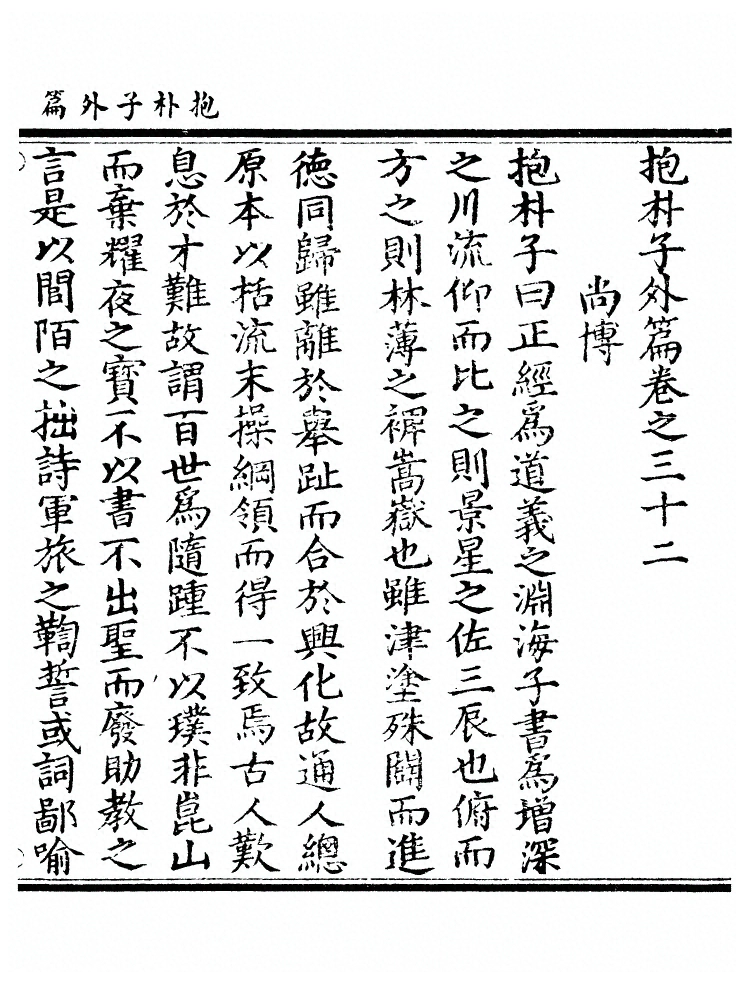 抱朴子外篇
抱朴子外篇卷之三十二
尚博
抱朴子曰正經爲道義之淵海子書爲增深
之川流仰而比之則景星之佐三辰也俯而
方之則林薄之裨嵩嶽也雖津塗殊闢而進
德同歸雖離於舉趾而合於興化故通人總
原本以括流末操綱領而得一致焉古人歎
息於才難故謂百世爲隨踵不以璞非崑山
而棄耀夜之寶不以書不出聖而廢助教之
言是以閭陌之拙詩軍旅之鞫誓或詞鄙喻